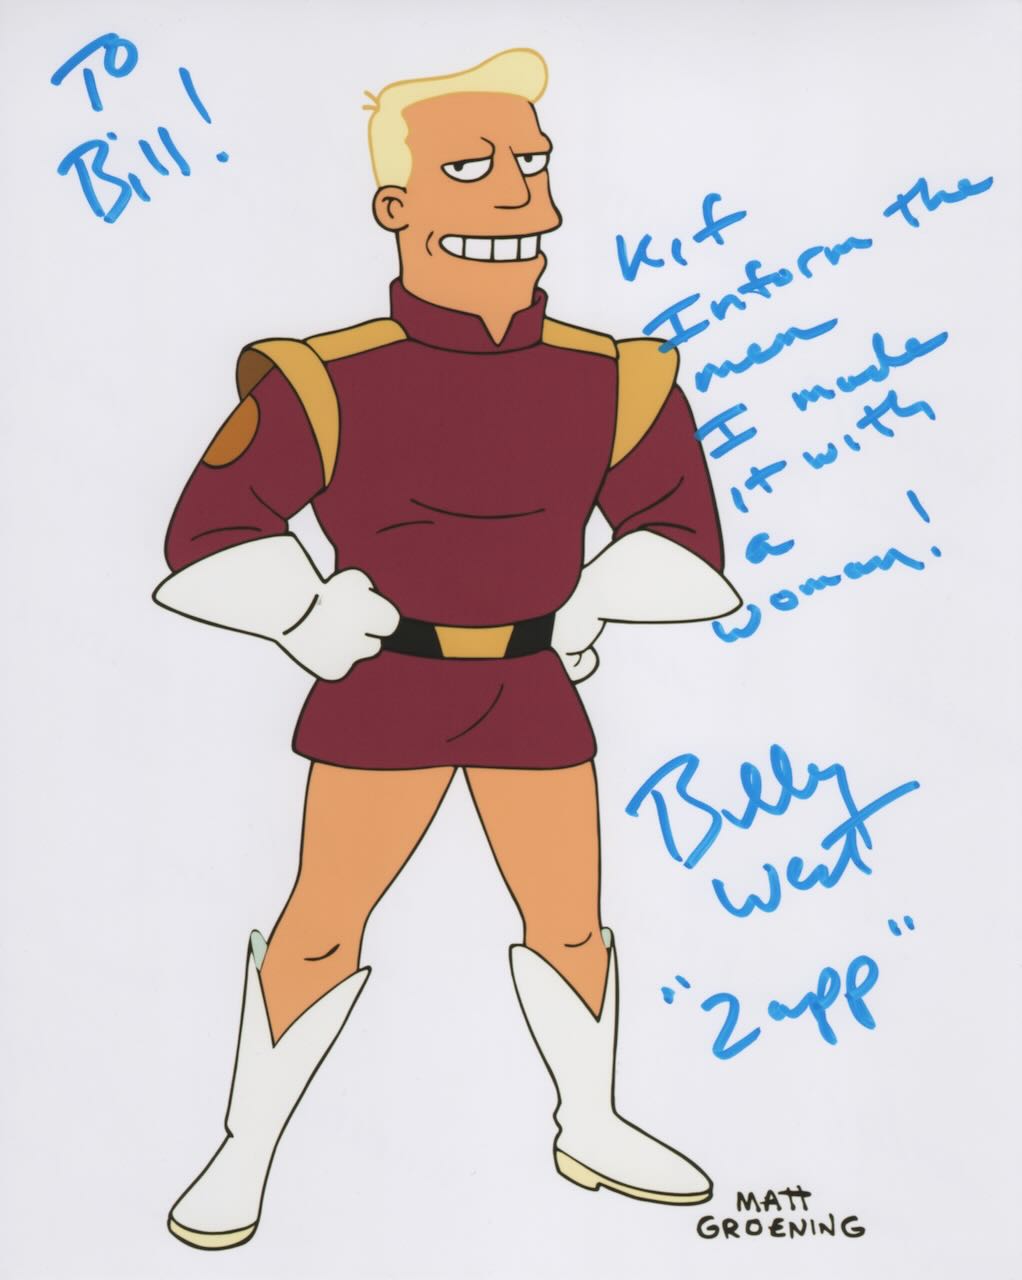 To
Bill!
Kif
Inform the
men
I made
it with
a
woman!
Billy
West
"Zapp"
MATT
GROENING